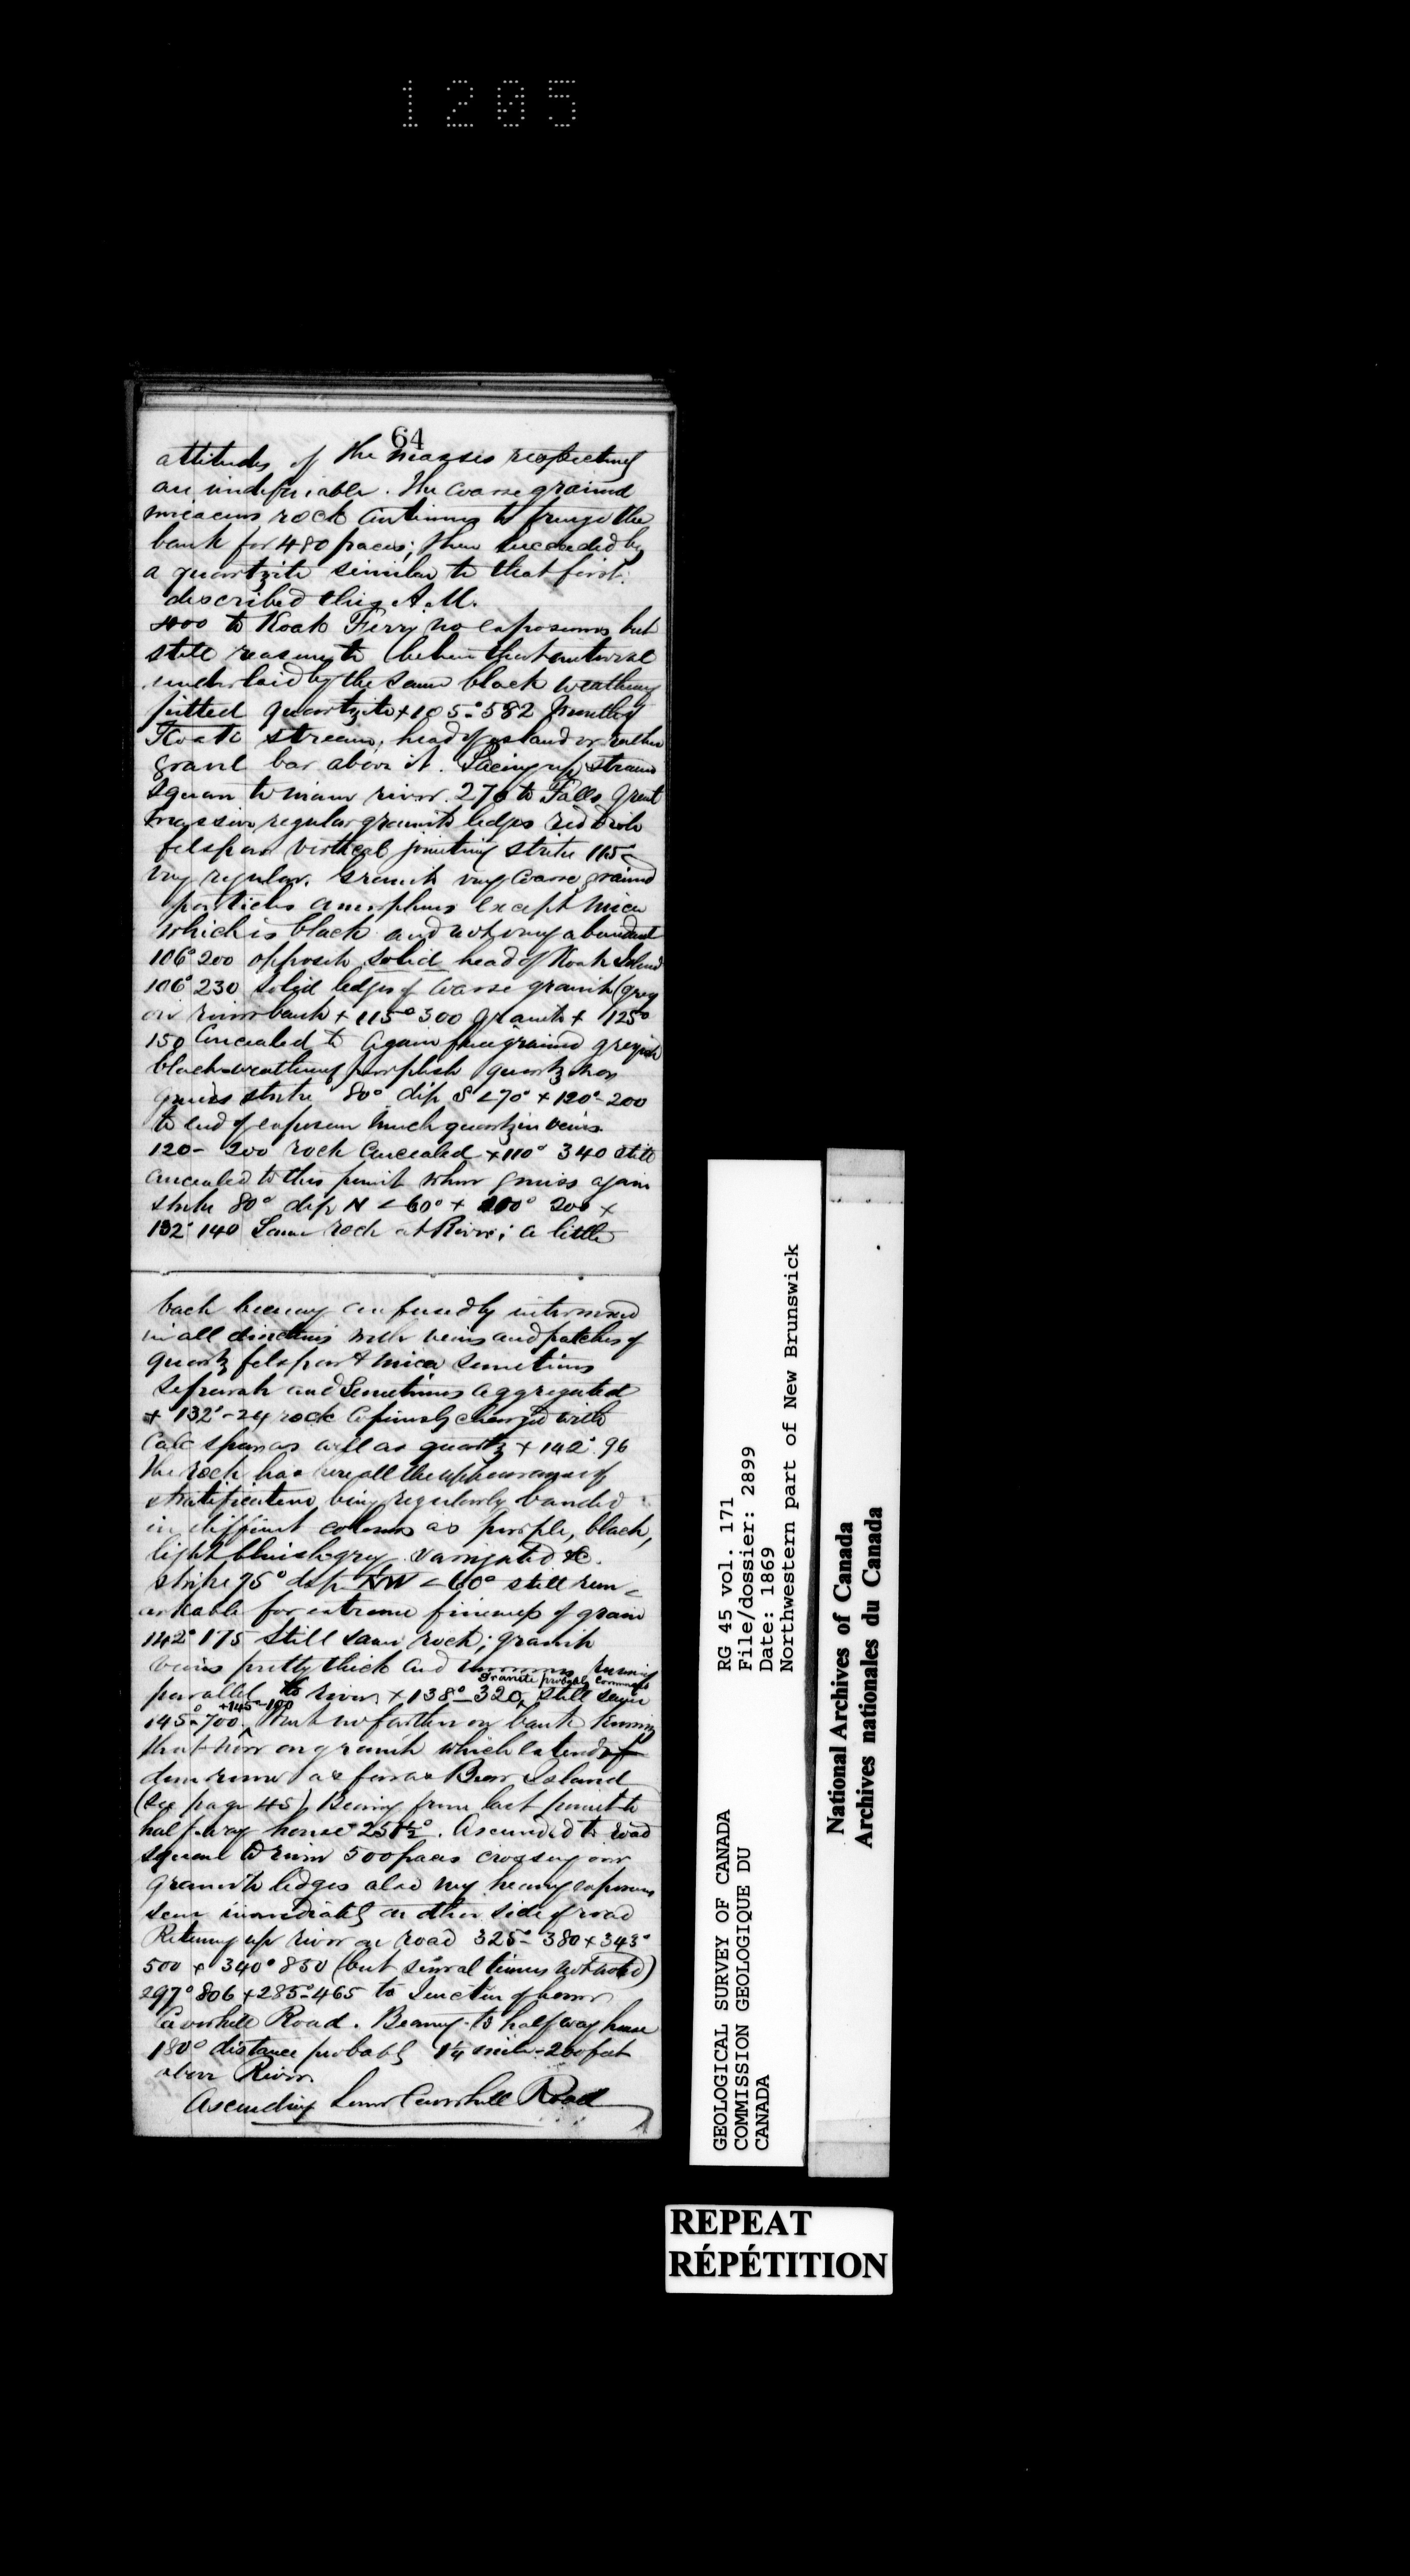 1205
64
attitudes of the masses respectively
are undefinable. The coarse grained
micaceous rock continues to fringe the
bank for 480 paces; then succeeded by
a quartzite similar to that first
described this A.M.
400 to Koak Ferry no exposures but
still reason to believe that interval
underlaid by the same black weathering
pitted quartzite + 105°- 582 mouth of
Koak stream, head of island or rather
gravel bar above it. up stream
square to main river. 270 to Falls great
massive regular granite ledges red with
felspar vertical jointing strike 115°
very regular. Granite very coarse grained
particles amorphous except mica
which is black and not very abundant
106° 200 opposite solid head of Koak Island
106° 230 solid ledges of coarse granite (grey
on river bank + 115° 300 granite + 125°
150 concealed to again fine grained greyish
black-weathering purplish quartzose
gneiss strike 80° dip S < 70° + 120°- 200
to end of exposure much quartz in veins
120- 200 rock concealed + 110° 340 still
concealed to this point where gneiss again
strike 80° dip N < 60° + 200 +
132° 140 Same rock at River; a little
back becoming confusedly intermixed
in all directions with veins and patches of
quartz felspar & mica sometimes
separate and sometimes aggregated
+ 132°- 24 rock copiously charged with
Calc spar as well as quartz + 142° 96
the rock has here all the appearance of
stratification being regularly banded
in different colours as purple, black,
light bluish-grey variegated &c.
strike 75° dip NW < 60° still rem-
arkable for extreme fineness of grain
142° 175 still same rock; granite
veins pretty thick and running
Granite probably commences
parallel to river + 138°- 320, still same
+145°-100
145°- 700. but no farther on bank knowing
that now on granite which extends
down river as far as Bear Island
(see page 45) Bearing from last point to
half-way house 251½°. Ascended to road
square to river 500 paces crossing over
granite ledges also very heavy exposures
seen immediately on other side of road
Returning up river on road 325°- 380 + 343°
500 + 340° 850 (but several turns not noted)
297° 806 + 285°- 465 to Junction of Lower
Caverhill Road. Bearing to half way house
180° distance probably 1¼ mile - 200 feet
above River
Ascending Lower Caverhill Road
GEOLOGICAL SURVEY OF CANADA
COMMISSION GEOLOGIQUE DU
CANADA
RG 45 vol. 171
File/dossier: 2899
Date: 1869
Northwestern part of New Brunswick
National Archives of Canada
Archives nationales du Canada
REPEAT
RÉPÉTITION